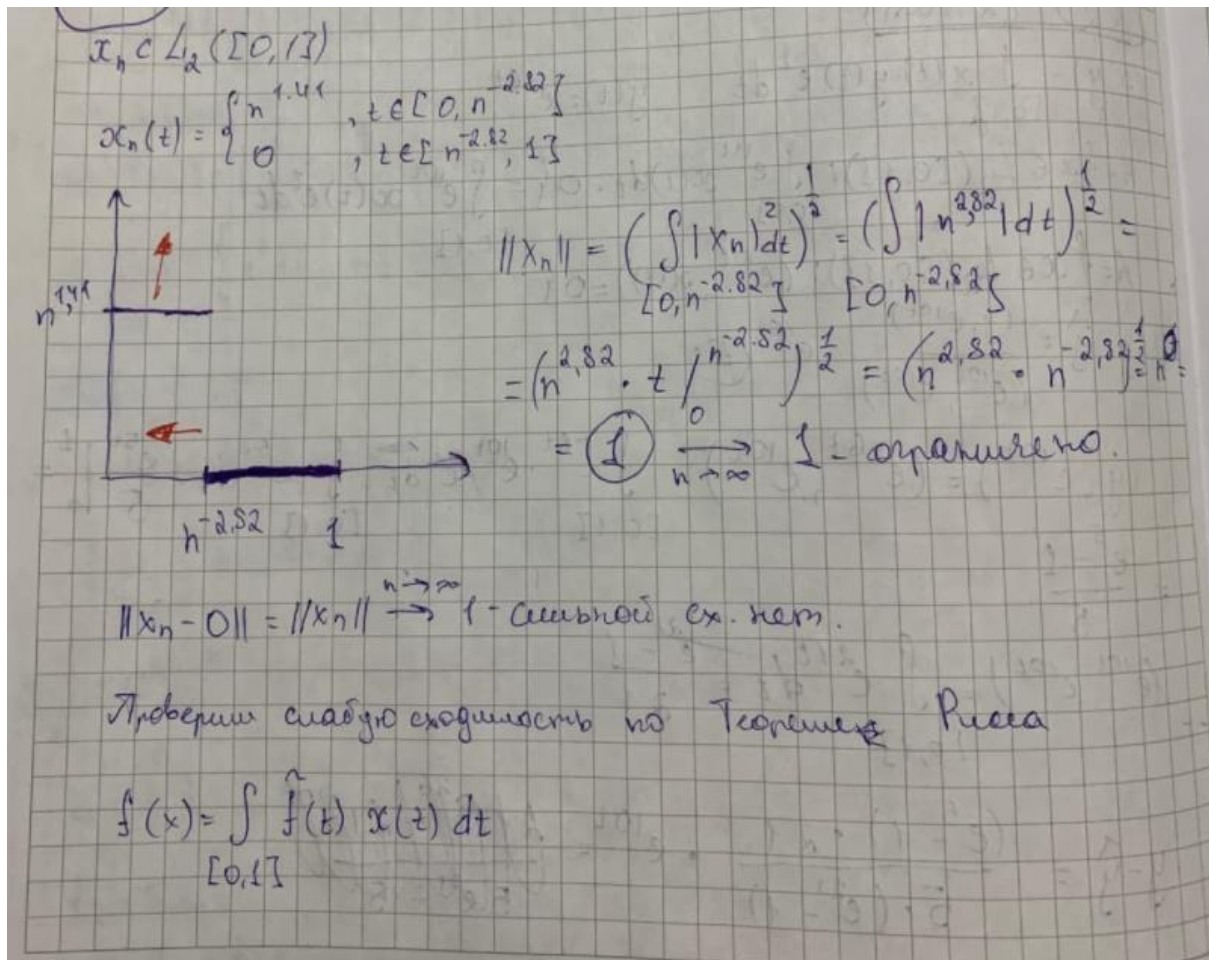 xₙ ⊂ L₂([0,1])
xₙ(t) = { n^1.41 , t∈[0, n^-2.82]
0 , t∈[n^-2.82, 1]
n^1,41
||xₙ|| = (∫ |xₙ|² dt)^1/2 = (∫ |n^2,82| dt)^1/2 =
[0, n^-2.82] [0, n^-2,82]
= (n^2,82 · t |₀^n^-2.82)^1/2 = (n^2,82 · n^-2,82)^1/2 = n^0 =
= 1 →n→∞ 1 - ограничено.
n^-2,82 1
||xₙ - 0|| = ||xₙ|| →n→∞ 1 - сильной сх. нет.
Проверим слабую сходимость по Теореме Рисса
f(x) = ∫ f̃(t) x(t) dt
[0,1]